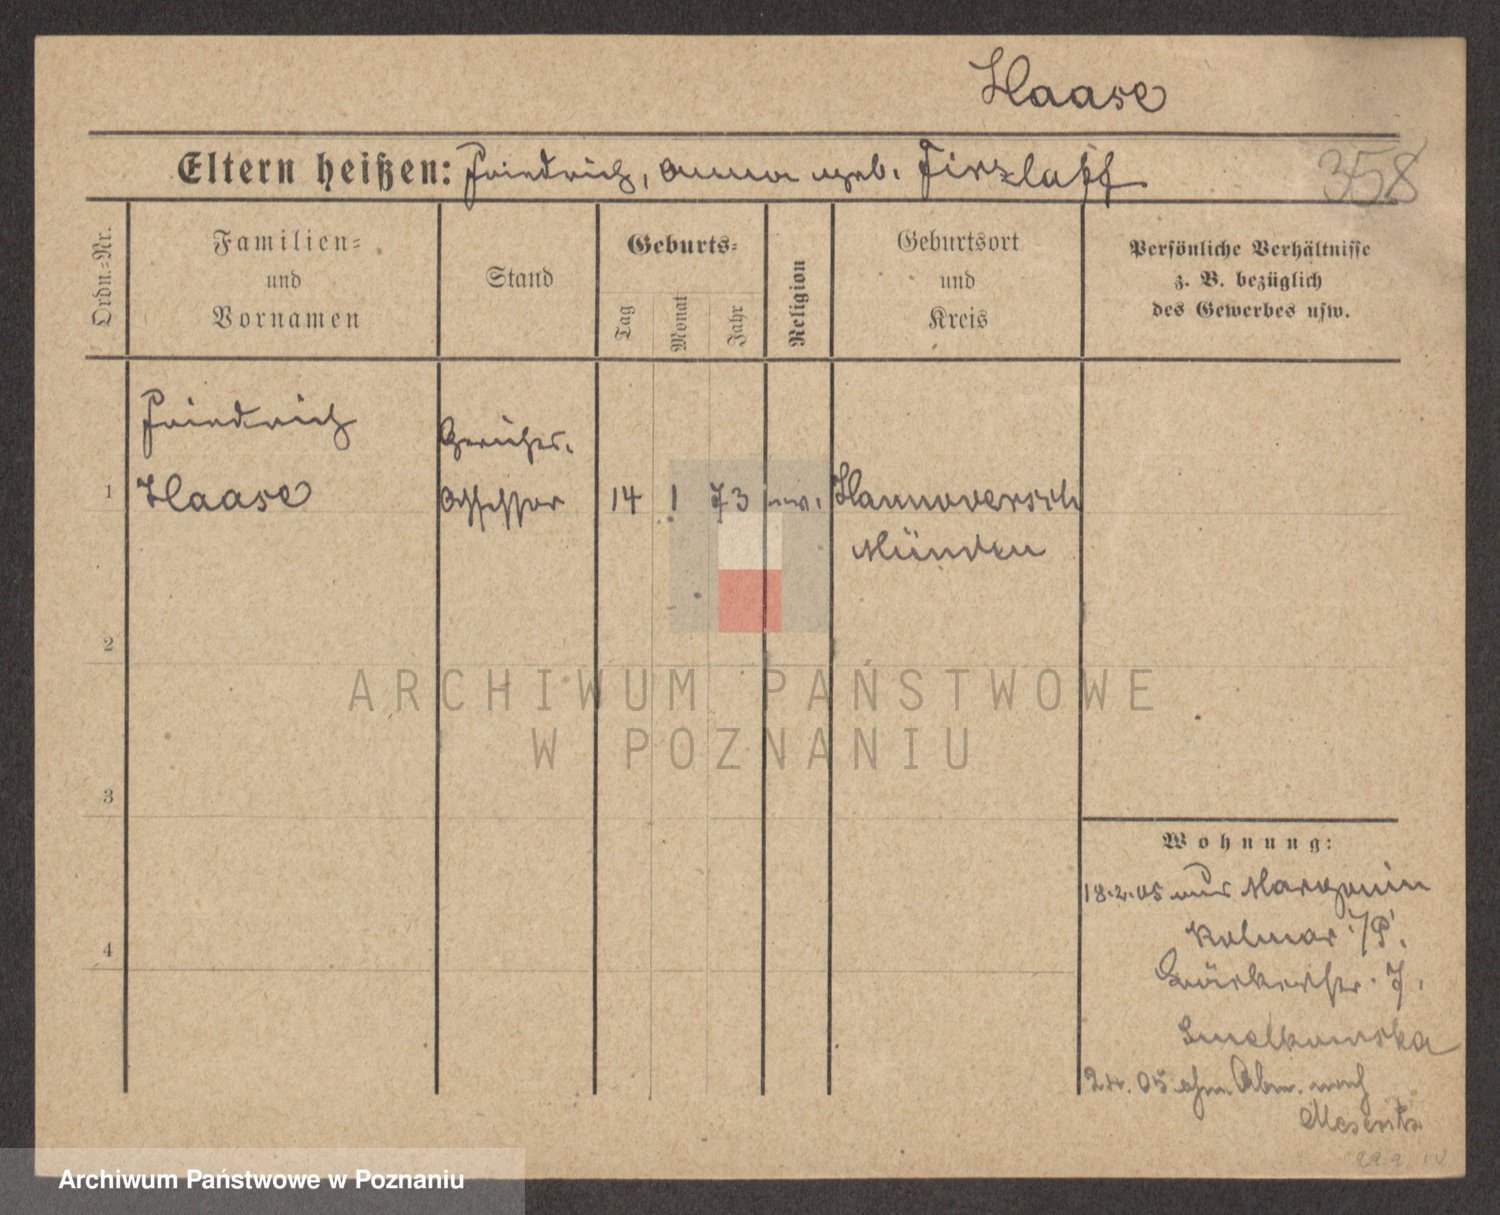 Haase
Eltern heißen: Friedrich, Anna geb. Firzlaff
358
Ordn.-Nr.
Familien-
und
Vornamen
Stand
Geburts-
Tag
Monat
Jahr
Religion
Geburtsort
und
Kreis
Persönliche Verhältnisse
z. B. bezüglich
des Gewerbes usw.
Friedrich
Gerichts-
1 Haase Assessor 14 1 73 ev. Hannoversch
Münden
2
ARCHIWUM PAŃSTWOWE
W POZNANIU
3
Wohnung:
18.2.05 aus Margonin
Kolmar i/P.
4
Bäckerstr. 7.
Smelkowska
2.4.05 ohne Abm. nach
Meseritz
Archiwum Państwowe w Poznaniu